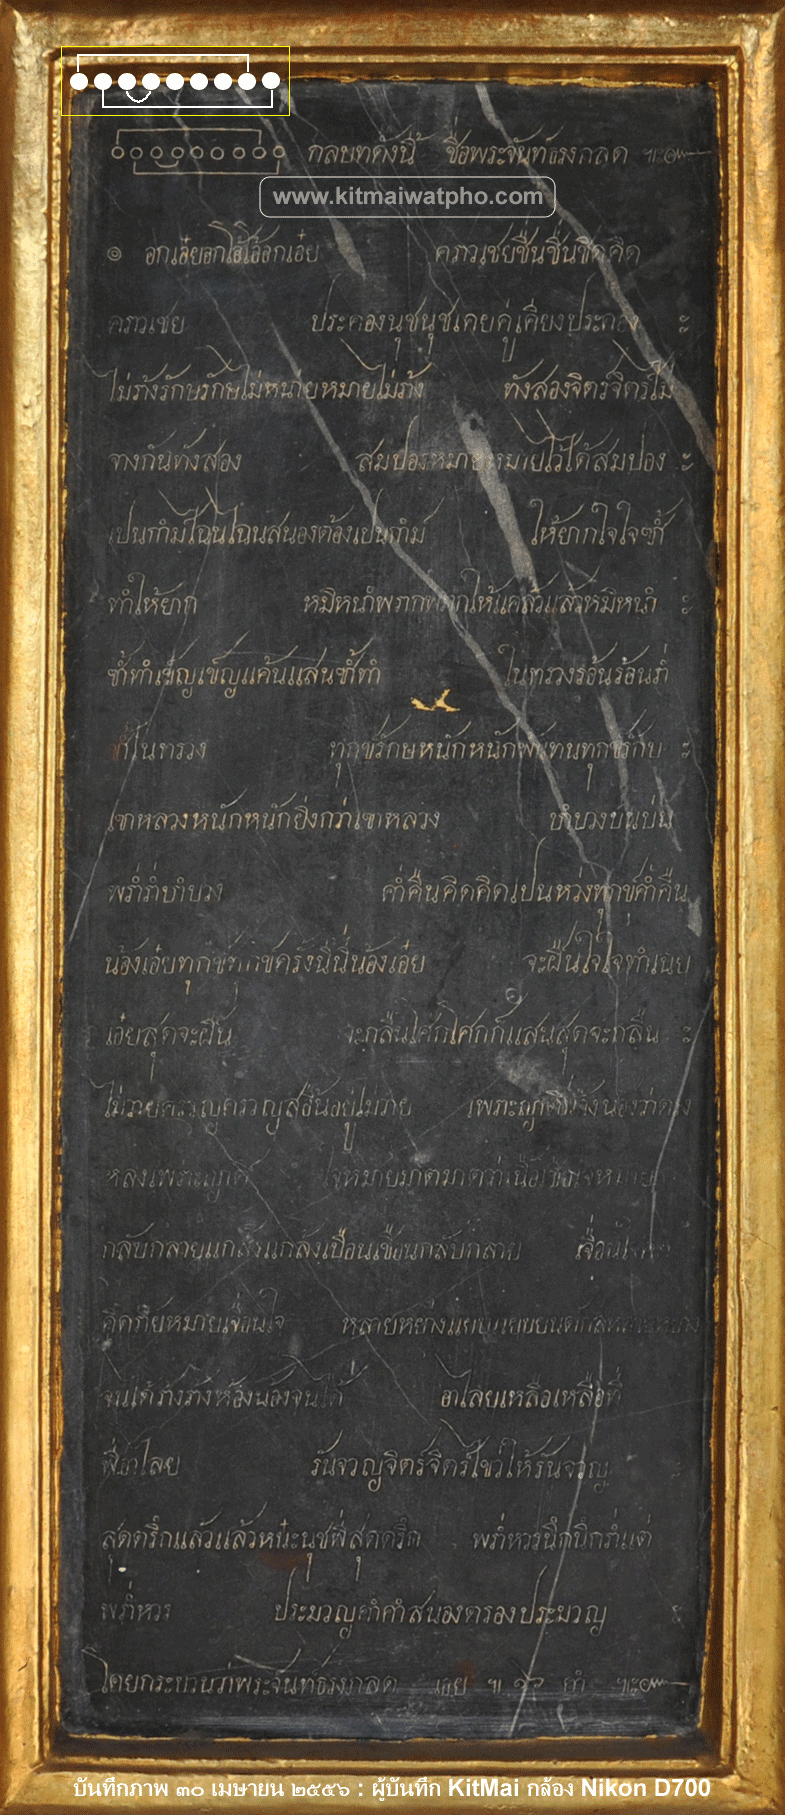 กลบทดั่งนี้ ชื่อพระจันท์ธรงกลด ๚ะ๛
www.kitmaiwatpho.com
๏ อกเอ๋ยอกโอ้โอ้อกเอ๋ย คราวเชยชื่นชื่นชิดคิด
คราวเชย ประคองนุชนุชเคยคู่เคียงประคอง ะ
ไม่ร้างรักษรักษไม่หน่ายหมายไม่ร้าง ทังสองจิตร์จิตร์ไม่
ทางกันทังสอง สมปองหมายหมายไว้ได้สมปอง ะ
เปนกำม์ไฉนไฉนสนองต้องเปนกำม์ ให้ยากใจใจช้ำ
ทำให้ยาก หมิหนำพรากพรากให้แคล้วแล้วหมิหนำ ะ
ซ้ำทำเข็ญเข็ญแค้นแสนซ้ำทำ ในทรวงรอ้นรอ้นร่ำ
ช้ำในทรวง ทุกข์รักษหนักหนักพันทนทุกข์รัก ะ
เขาหลวงหนักหนักยิ่งกว่าเขาหลวง บำบวงบนบ่น
พร่ำร่ำบำบวง ค่ำคืนคิดคิดเปนห่วงทุกข์ค่ำคืน
น้องเอ๋ยทุกข์ทุกข์ครั้งนี้นี้น้องเอ๋ย จะฝืนใจใจ
เอ๋ยสุดจะฝืน จะกลืนโศกโศกก็แสนสุดจะกลืน ะ
ไม่วายครวญครวญสอื้นอยู่ไม่วาย เพราะ
หลงเพราะ ใจหมายมาดมาดว่าเนื้อ
กลับกลายแกล้งแกล้งเบือนเชือนกลับกลาย
คิด หมายเจื่อนใจ หลายหย่าง
จนได้ร้างร้างห้องน้องจนได้ อาไลยเหลือเหลือที่
พี่อาไลย รันจวญจิตร์จิตร์ไขว่ให้รันจวญ
สุดตริ์กแล้วแล้วหน๋ะนุชพี่สุดตริ์ก พร่ำหวรนึกนึกร่ำแต่
พร่ำหวร ประมวญคำคำสนองตรองประมวญ ะ
โดยกระบวนว่าพระจันท์ธรงกลด เอย ๚ คำ ๚ะ๛
บันทึกภาพ ๓๐ เมษายน ๒๕๕๖ : ผู้บันทึก KitMai กล้อง Nikon D700